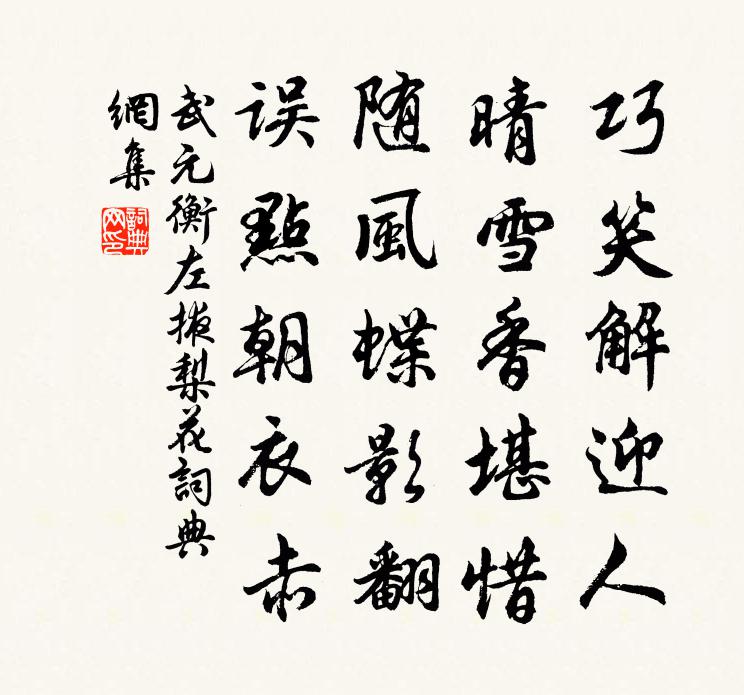 巧笑解迎人
晴雪香堪惜
随風蝶影翻
误點朝衣赤
武元衡左掖梨花詞典
網集
詞典
网